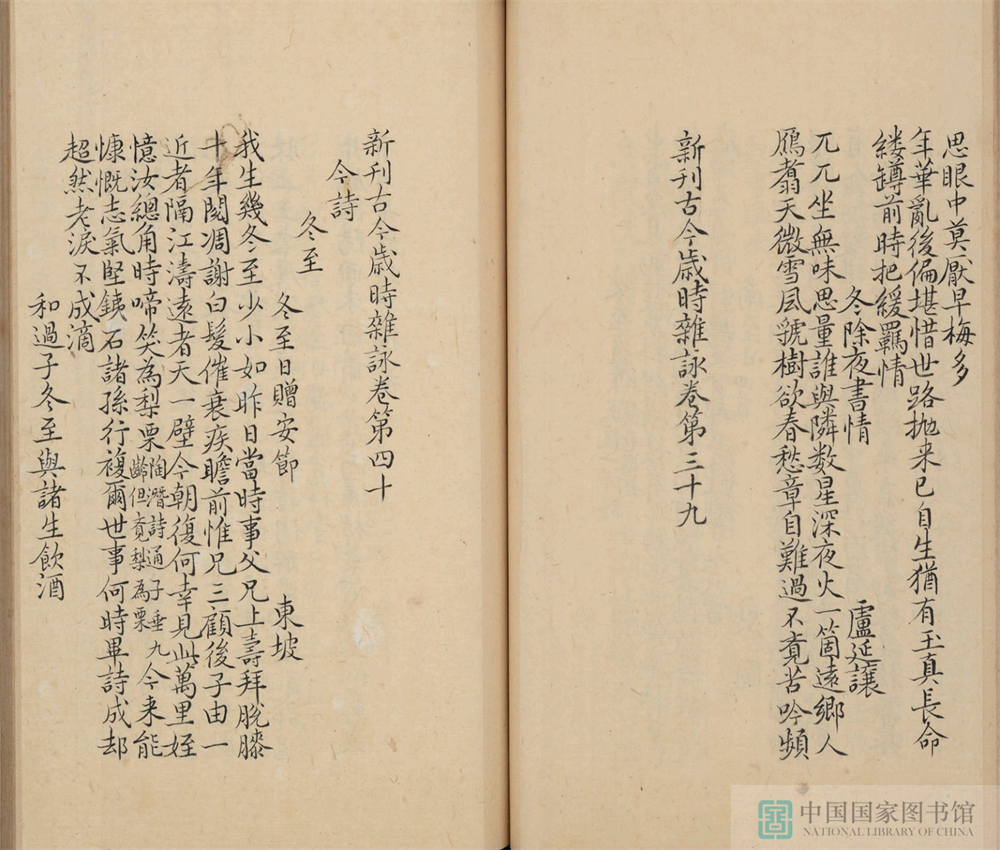 思眼中莫厭早梅多
年華亂後偏堪惜世路抛来已自生猶有玉真長命
縷罇前時把緩羈情
冬除夜書情 盧延讓
兀兀坐無味思量誰與隣数星深夜火一箇遠鄉人
鴈翥天微雪風號樹欲春愁章自難過不竟苦吟頻
新刊古今歳時雜詠卷第三十九
新刊古今歳時雜詠卷第四十
今詩
冬至
冬至日贈安節 東坡
我生幾冬至少小如昨日當時事父兄上壽拜脫膝
十年閱凋謝白髮催衰疾瞻前惟兄三顧後子由一
近者隔江濤遠者天一壁今朝復何幸見此萬里姪
憶汝總角時啼笑為梨栗陶潛詩通子垂九齡但竟梨為栗今来能
慷慨志氣堅鉄石諸孫行複爾世事何時畢詩成却
超然老淚不成滴
和過子冬至與諸生飲酒
中国国家图书馆
NATIONAL LIBRARY OF CHINA